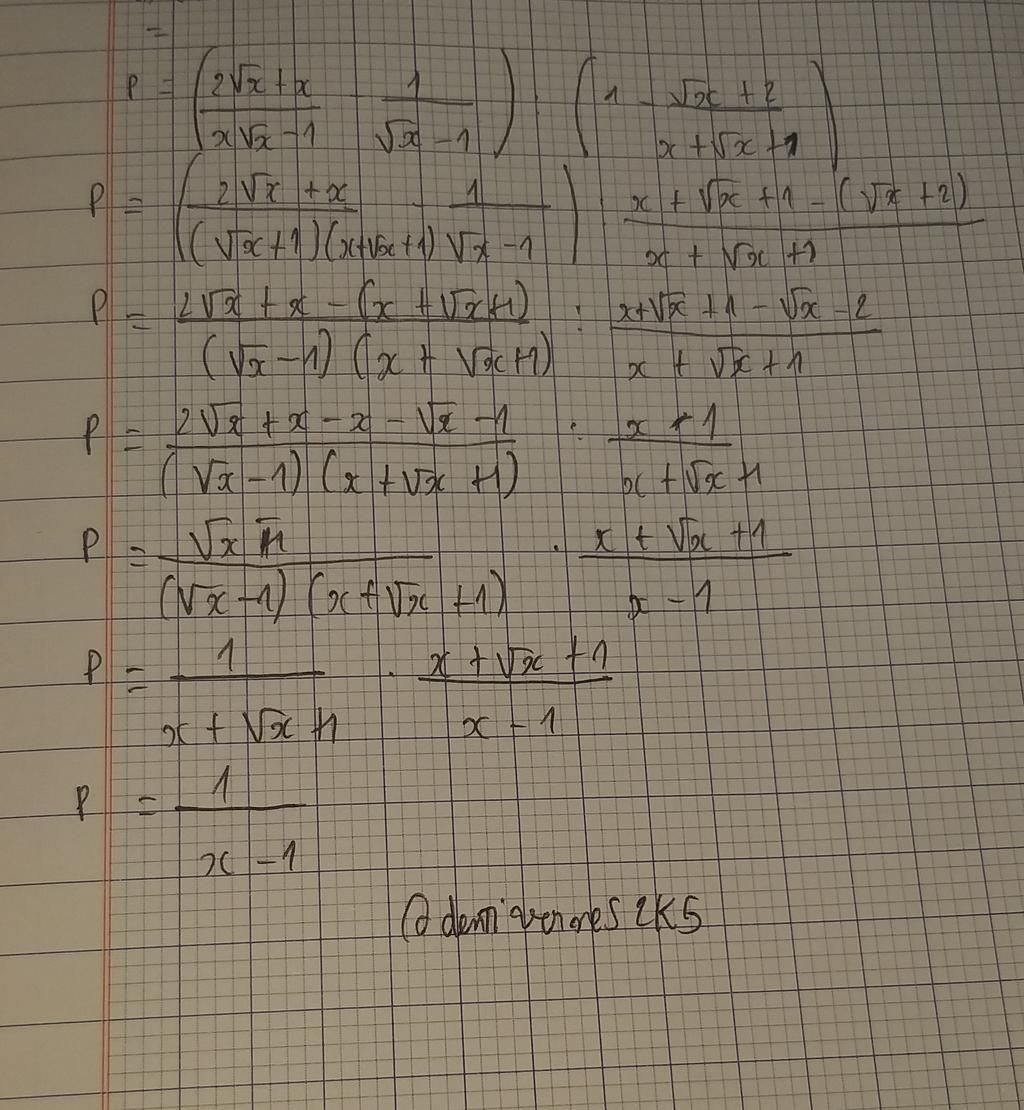 =
P = ((2√x + x)/(x√x - 1) - 1/(√x - 1)) : (1 - (√x + 2)/(x + √x + 1))
P = ((2√x + x)/((√x + 1)(x + √x + 1)) - 1/(√x - 1)) : (x + √x + 1 - (√x + 2))/(x + √x + 1)
P = (2√x + x - (x + √x + 1))/((√x - 1)(x + √x + 1)) : (x + √x + 1 - √x - 2)/(x + √x + 1)
P = (2√x + x - x - √x - 1)/((√x - 1)(x + √x + 1)) : (x - 1)/(x + √x + 1)
P = (√x - 1)/((√x - 1)(x + √x + 1)) . (x + √x + 1)/(x - 1)
P = 1/(x + √x + 1) . (x + √x + 1)/(x - 1)
P = 1/(x - 1)
2K5